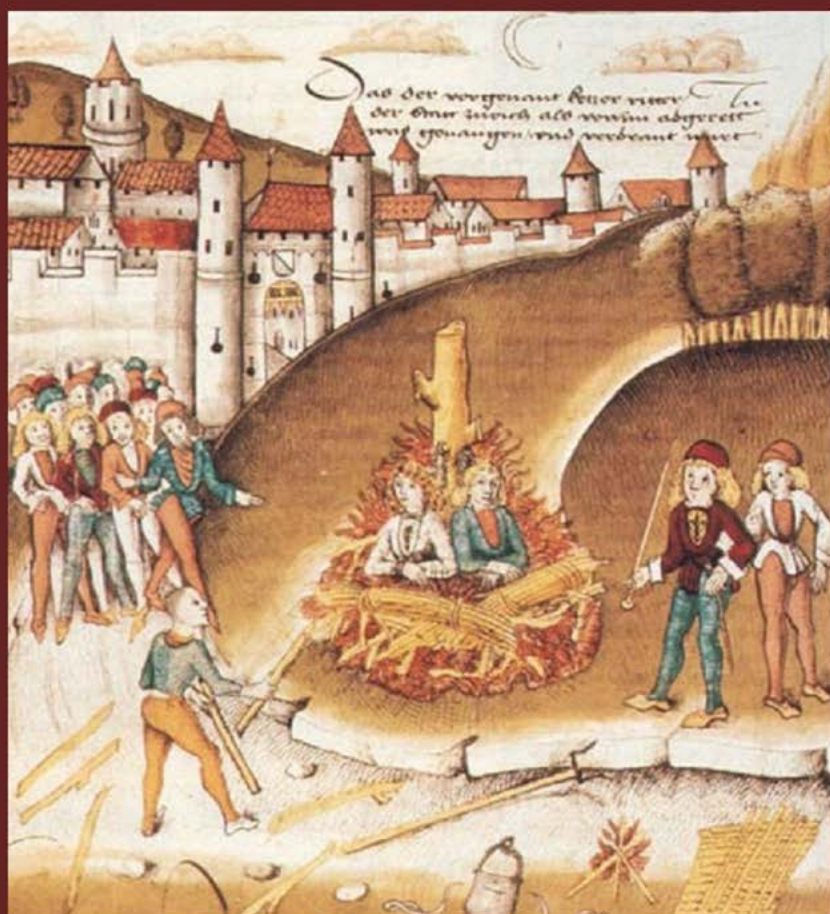 Das der vorgenant ketzer ritter
der Statt zürich als vorm abgerett
was genangen vnd verbrant wart